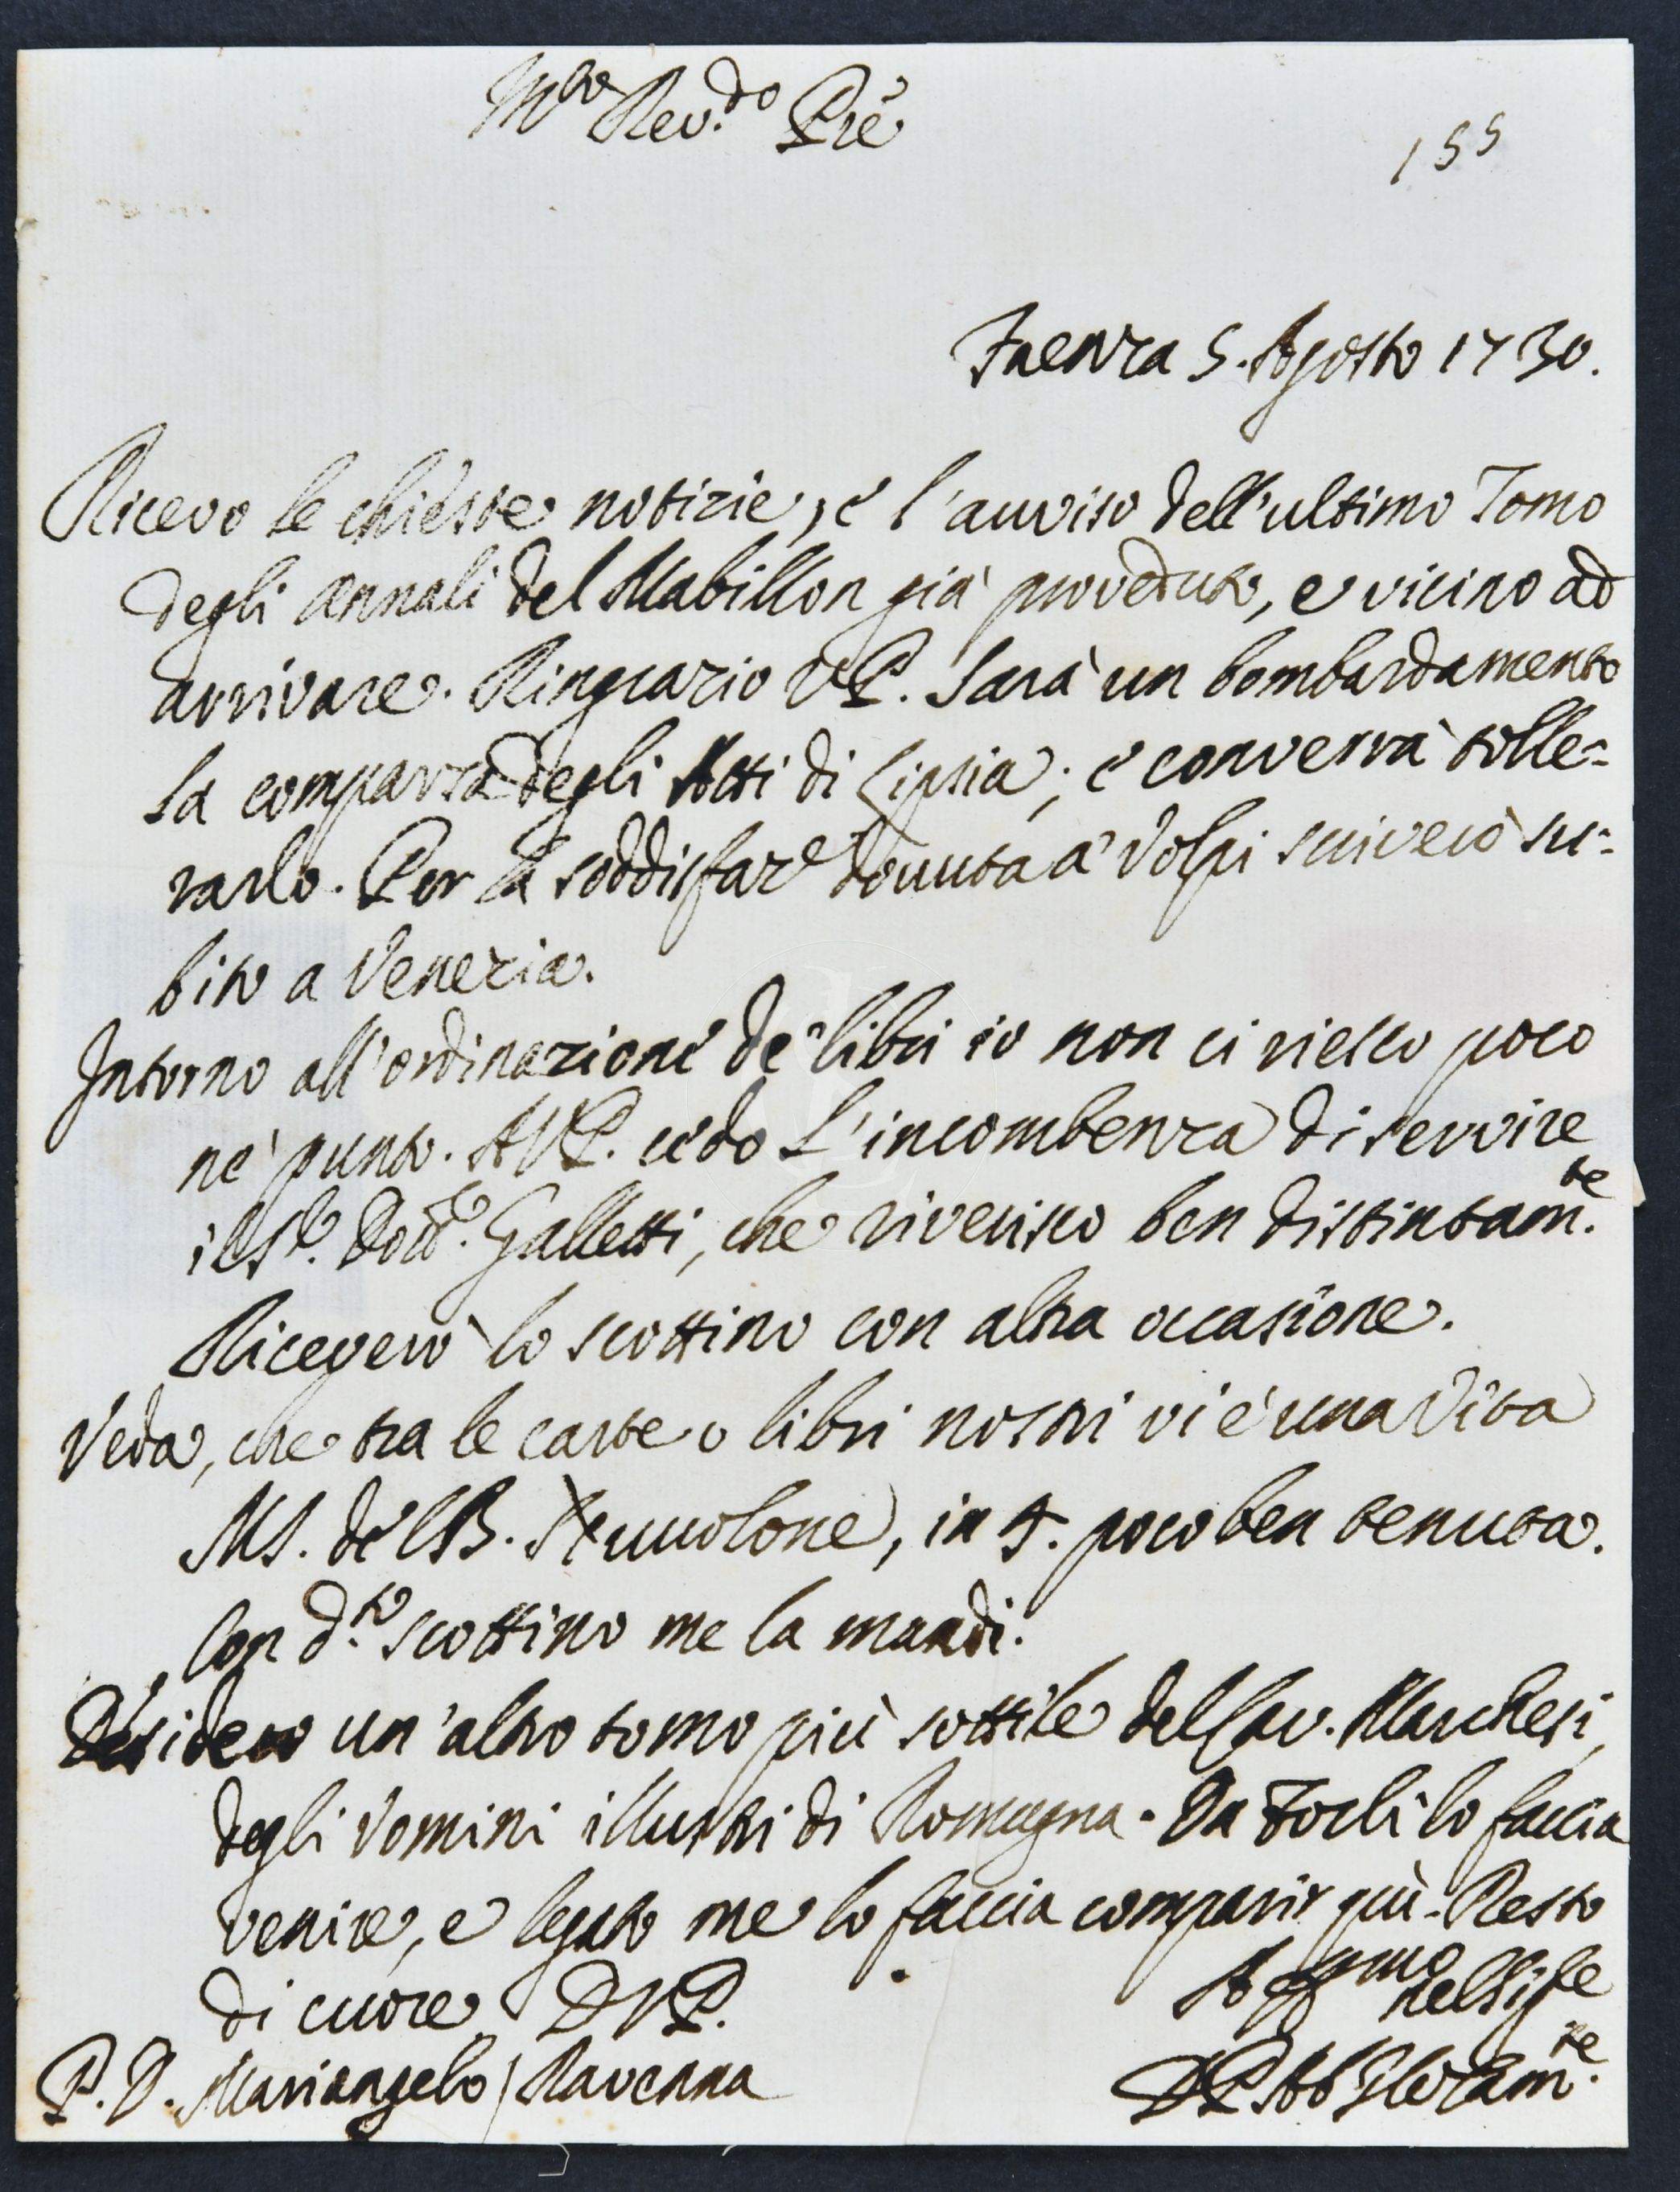 M.to Rev.do Pre
155
Faenza 5. Agosto 1730.
Ricevo le chieste notizie, e l'avviso dell'ultimo Tomo
degli Annali del Mabillon già proveduto, e vicino ad
arrivare. Ringrazio V.P. Sarà un bombardamento
la comparsa degli Atti di Lipsia; e converrà tolle=
rarlo. Per la soddisfaze dovuta a' Volpi scriverò su=
bito a Venezia.
Intorno all'ordinazione de' libri io non ci riesco poco
nè punto. A V.P. cedo L'incombenza di servire
il Sr. Dott. Galletti, che riverisco ben distintam.te
Riceverò lo scottino con altra occasione.
Veda, che tra le carte o libri nostri vi è una Vita
MS. del B. Nevolone, in 4. poco ben tenuta.
Con d.to scottino me la mandi.
Desidero un'altro tomo più sottile del Cav. Marchesi,
degli Vomini illustri di Romagna. Da Forlì lo faccia
venire, e legato me lo faccia comparir quì. Resto
di cuore D.V.P.
Aff.mo
P. D. Mariangelo / Ravenna
D.P. Ab.